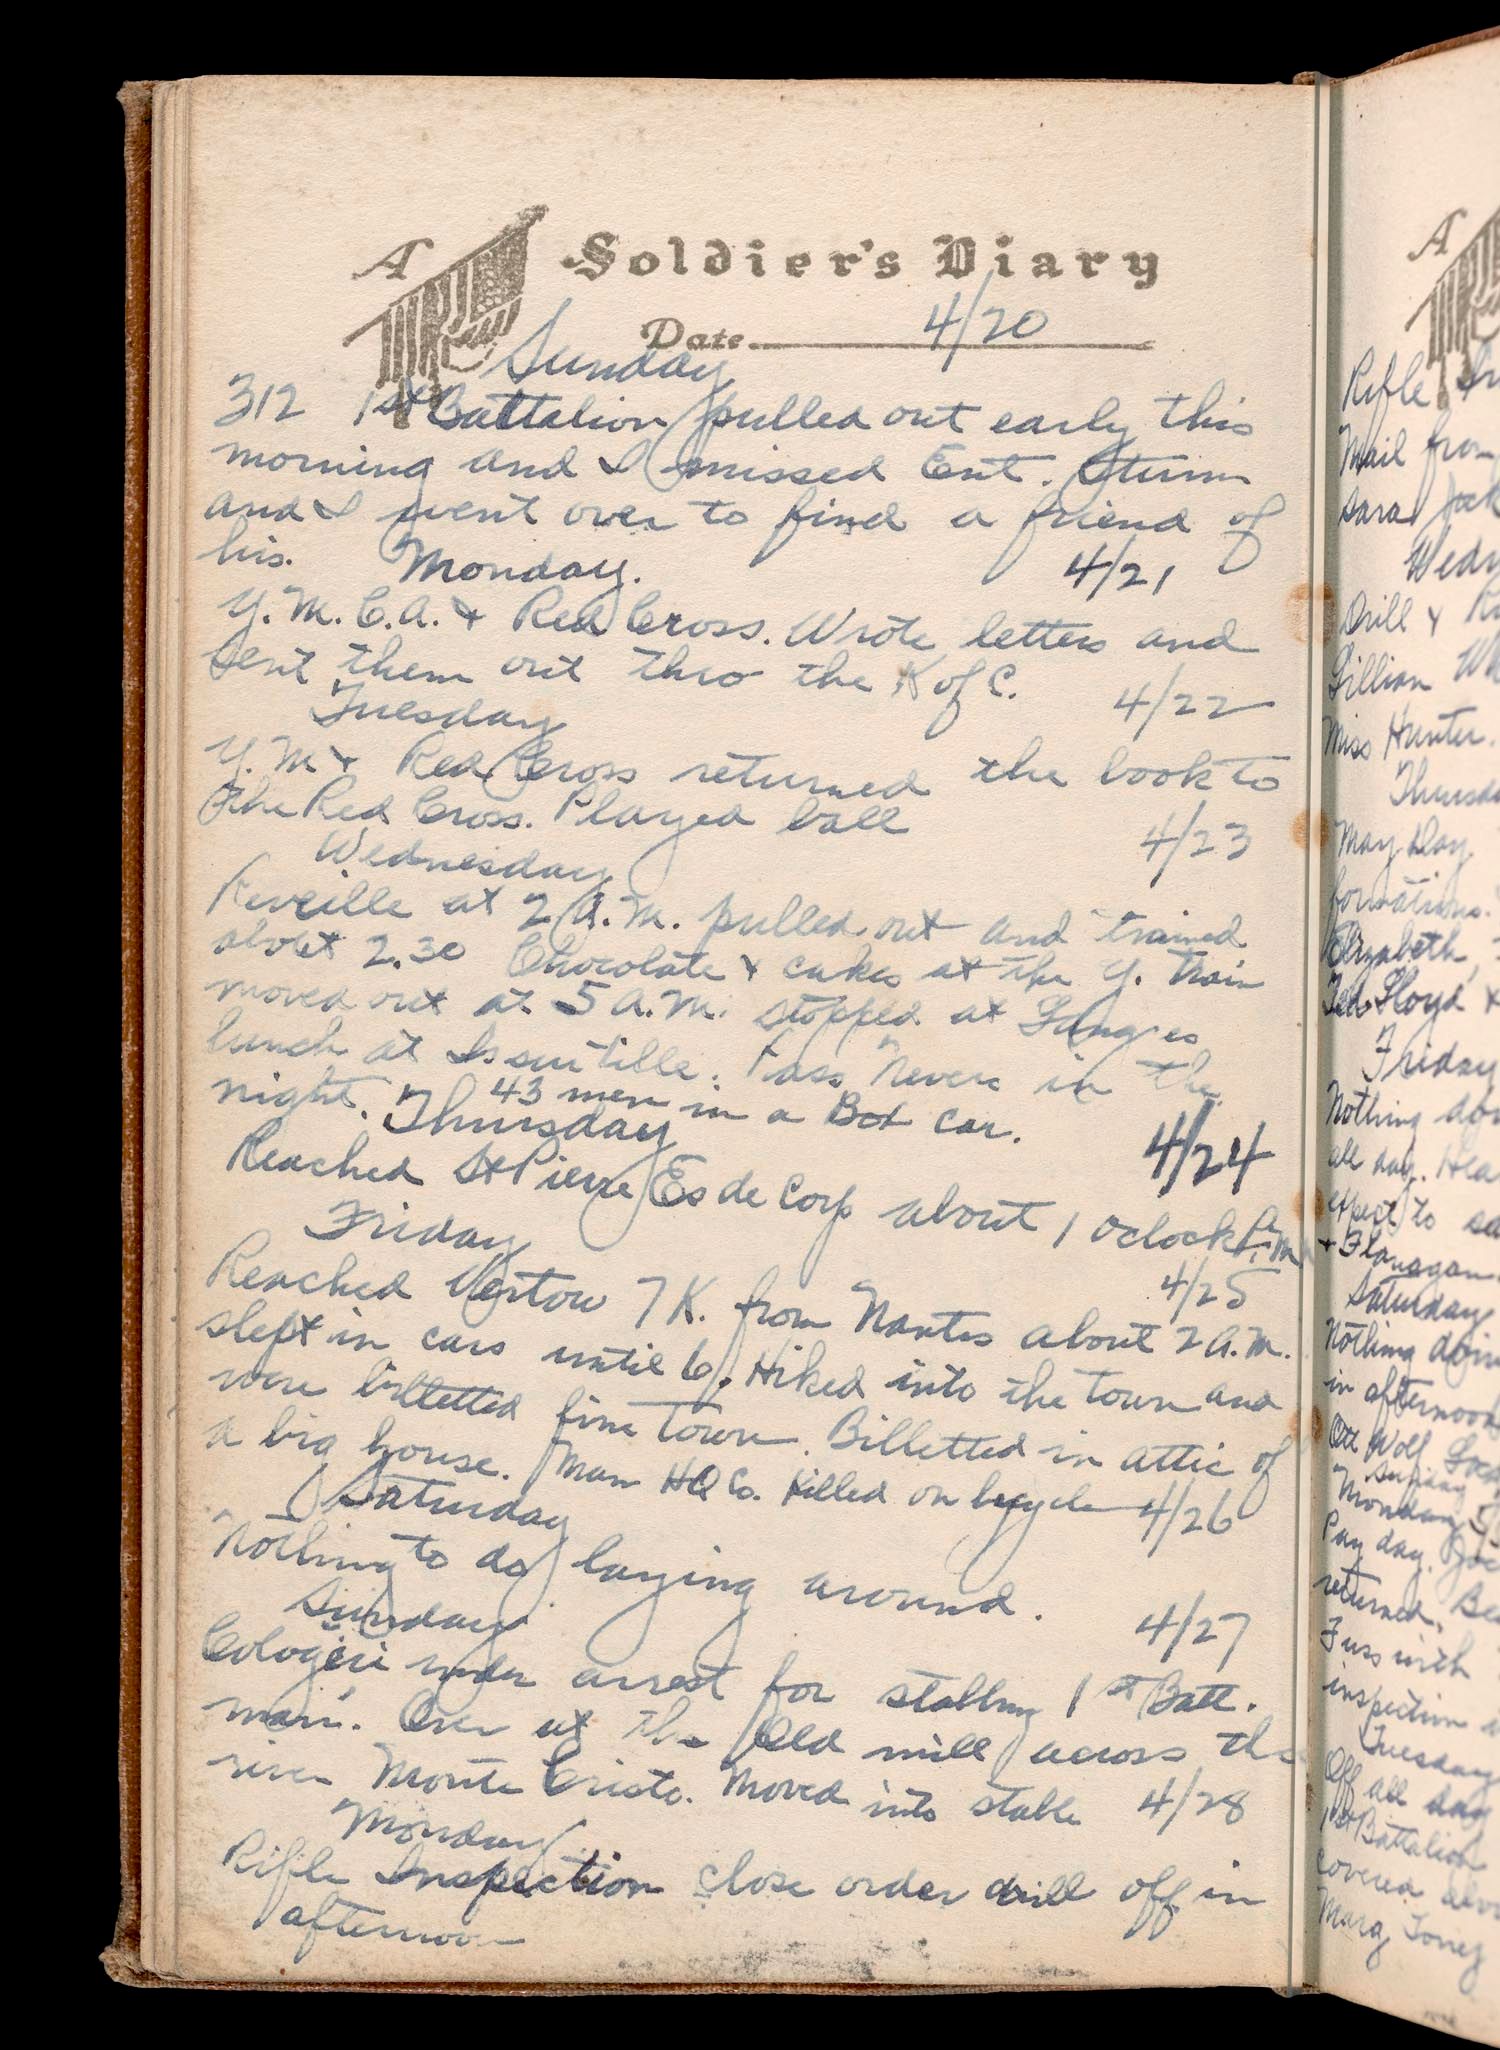 A Soldier's Diary
Date 4/20
Sunday
312 1st Battalion pulled out early this
morning and I missed Ent. Sturm
and I went over to find a friend of
his. Monday. 4/21
Y.M.C.A. & Red Cross. Wrote letters and
sent them out thro the K of C.
Tuesday 4/22
Y.M & Red Cross returned the book to
the Red Cross. Played ball
Wednesday 4/23
Reveille at 2 A.M. pulled out and trained
about 2.30 Chocolate & cakes at the Y. Train
moved out at 5 A.M. stopped at
lunch at Pass Nevers in the
night. 43 men in a Box car.
Thursday 4/24
Reached St Pierre Es de Corp about 1 oclock P.M
Friday
Reached Vertou 7 K. from Nantes about 2 A.M. 4/25
slept in cars until 6. Hiked into the town and
were billetted fine town. Billetted in attic of
a big house. Man HQ Co. Killed on bycycle
Saturday 4/26
Nothing to do laying around.
Sunday 4/27
under arrest for stabbing 1st Batt.
man. Over at the Old mill across the
river Monte Cristo. Moved into stable
Monday 4/28
Rifle Inspection close order drill off in
afternoon
A
Rifle
Mail from
Sara Jack
Drill &
Gillian
Miss Hunter.
May Day
formations.
Elizabeth,
Ted Lloyd &
Friday
Nothing
all day.
expect to
& Flanagan
Saturday
Nothing
in afternoon
Wolf
Sunday
Monday
Pay day.
returned.
Fuss with
inspection
Tuesday
Off all day
1st Battalion
covered